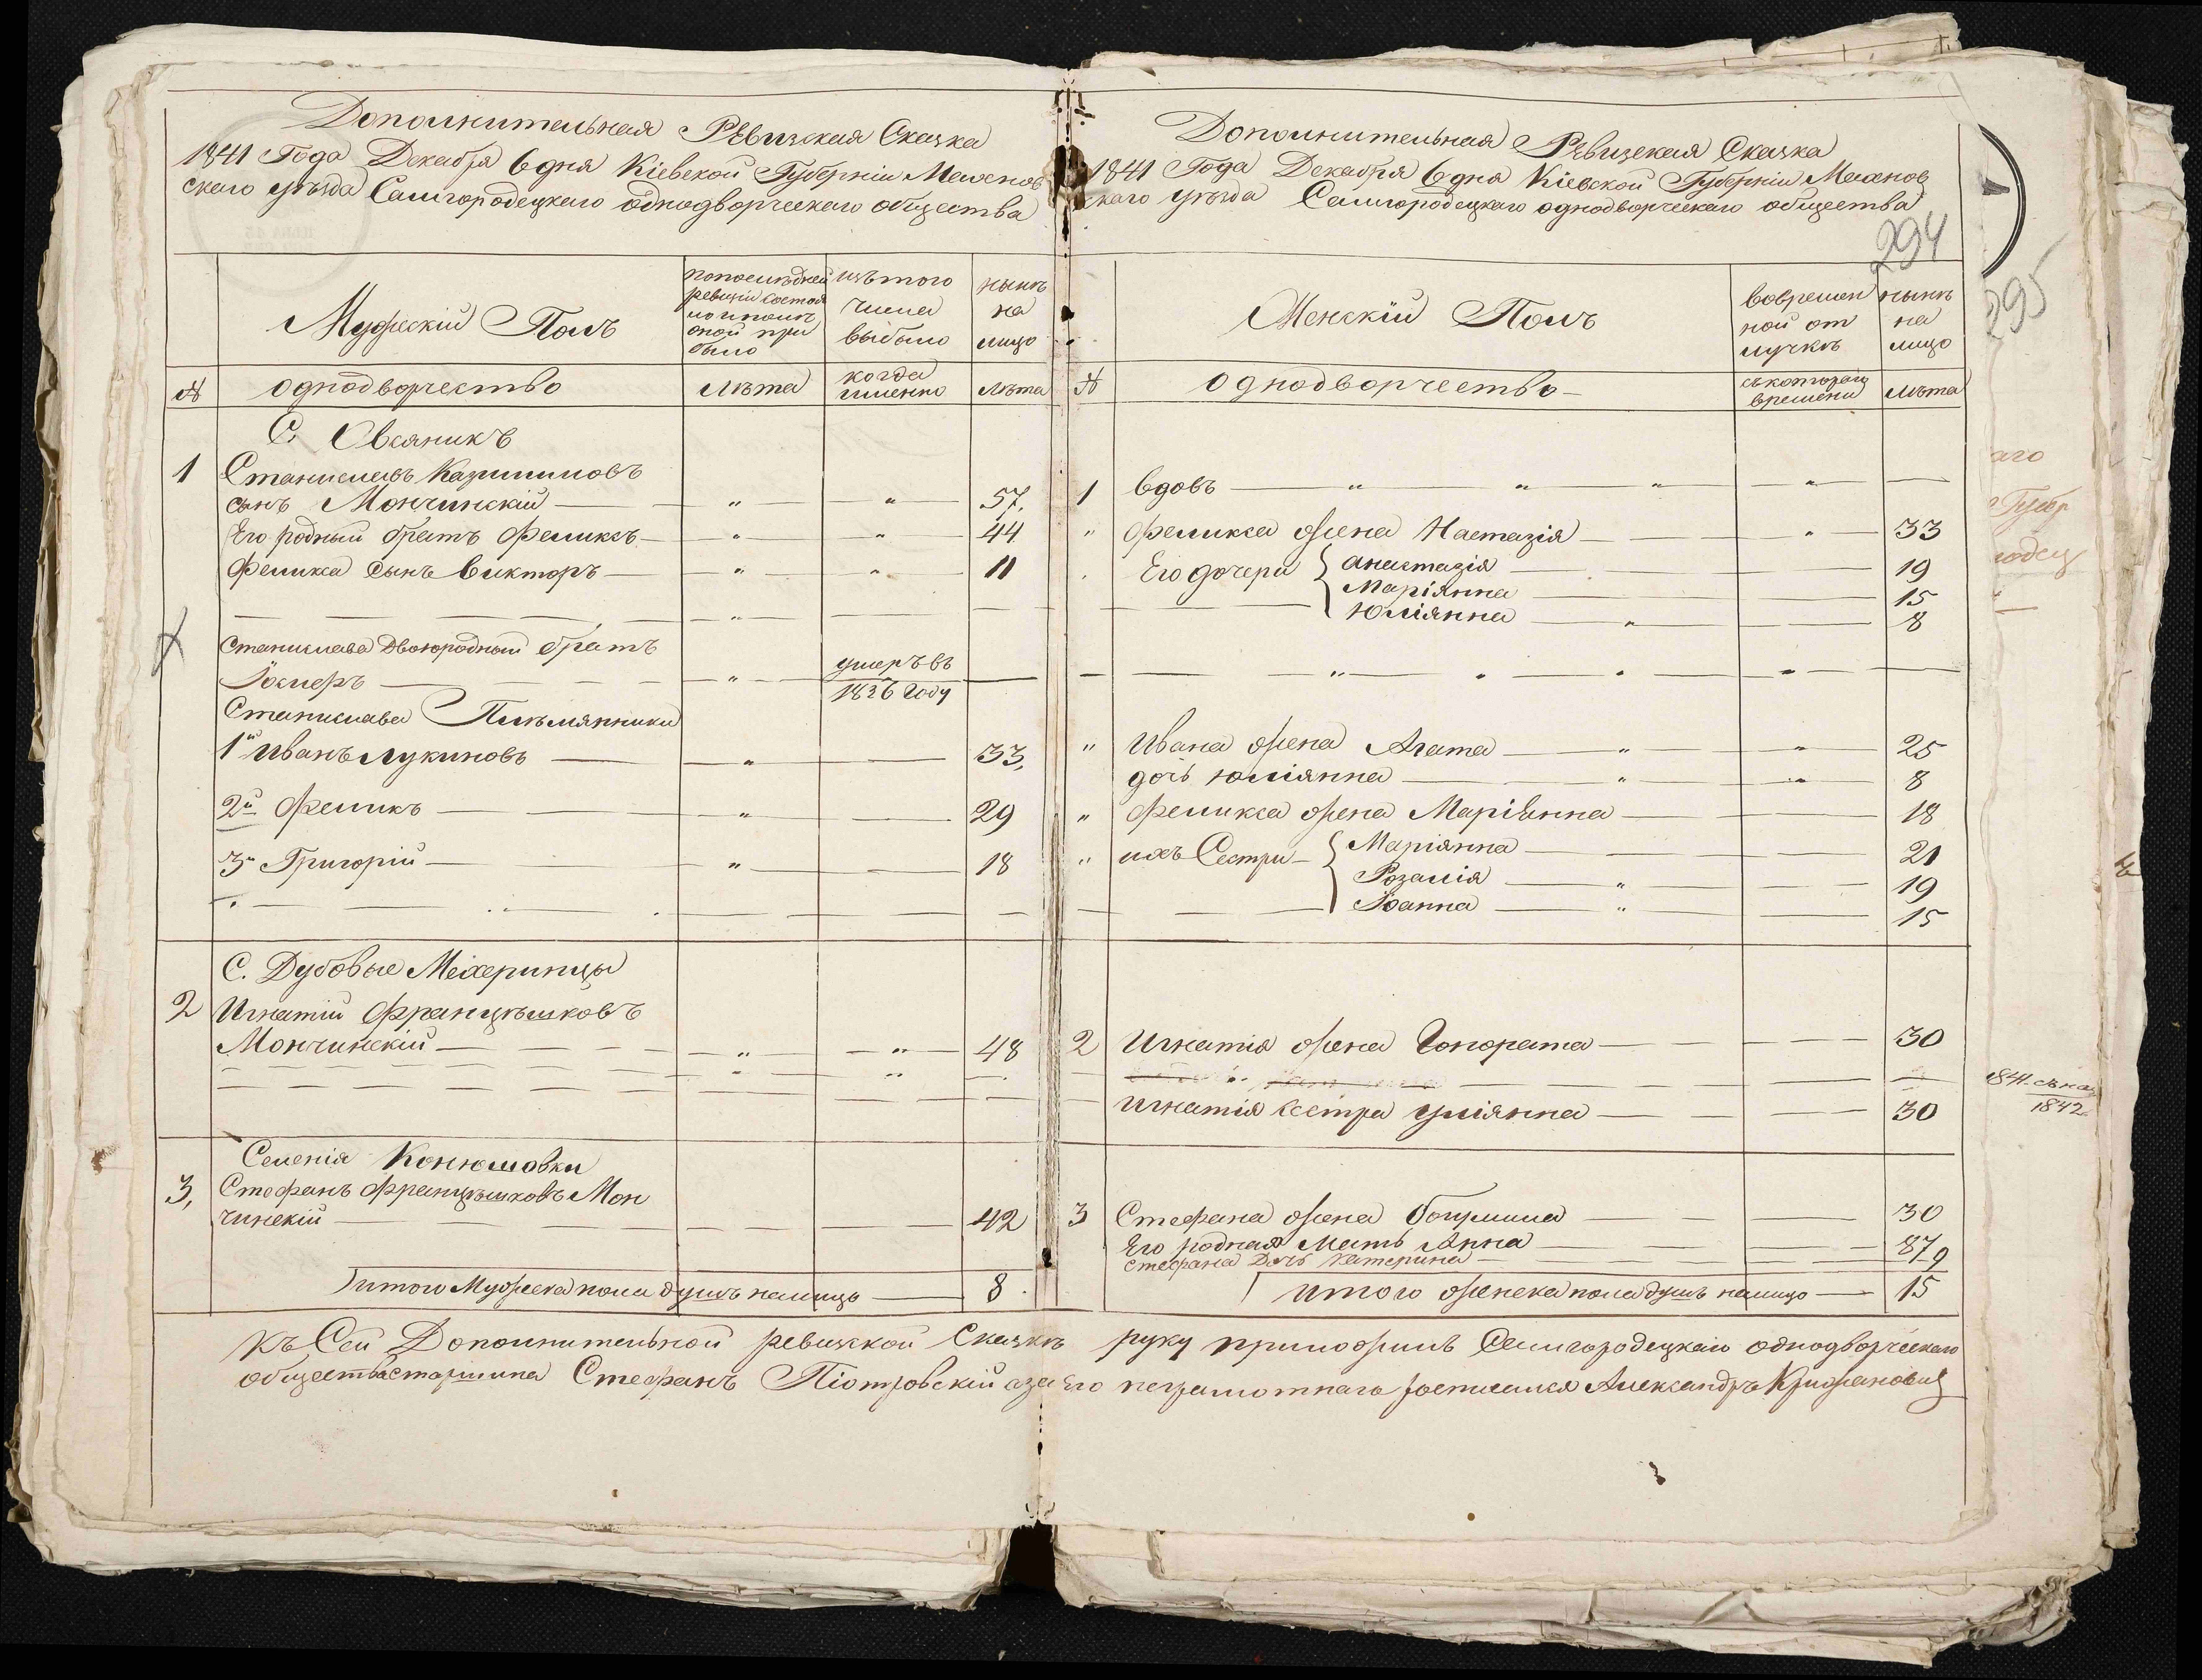 Дополнительная Ревизская Сказка
1841 Года Декабря 6 дня Кіевской Губерніи Махнов
скаго уѣзда Самгородецкаго однодворческаго общества
Мужескій Полъ
по последней
ревизіи состоя
ло и после
оной при
было
изъ того
числа
выбыло
нынѣ
на
лицо
№
однодворчество
лѣта
когда
именно
лѣта
С. Овсяникъ
1
Станиславъ Казимировъ
сынъ Мончинскій
57.
Его родный братъ Феликсъ
44
Феликса сынъ Викторъ
11
Станислава двоюродный братъ
Іосиеръ
умеръ въ
1836 году
Станислава Племянники
1й Иванъ Лукиновъ
33,
2й Феликъ
29
3й Григорій
18
С. Дубовые Мехеринцы
2
Игнатій Францѣшковъ
Мончинскій
48
Селенія Конюшовки
3,
Стефанъ Францѣшковъ Мон
чинскій
42
итого Мужеска пола душъ налицо
8
Дополнительная Ревизская Сказка
1841 Года Декабря 6 дня Кіевской Губерніи Махнов
скаго уѣзда Самгородецкаго однодворческаго общества
294
Женскій Полъ
во времен
ной от
лучкѣ
нынѣ
на
лицо
№
однодворчество
съ котораго
времени
лѣта
1
вдовъ
Феликса жена Настазія
33
Его дочери
Анастазія
19
Маріянна
15
Юліянна
8
Ивана жена Агата
25
дочь Юліянна
8
Феликса жена Маріянна
18
ихъ Сестри
Маріянна
21
Розалія
19
Іоанна
15
2
Игнатія жена Гонората
30
Игнатія сестра Уліянна
30
3
Стефана жена
30
Его родная Мать Анна
87
Стефана Дочь Катерина
9
итого женска пола душъ налицо
15
Къ Сей Дополнительной ревизской Сказкѣ руку приложилъ Самгородецкаго однодворческаго
общества старшина Стефанъ Піотровскій а за Его неграмотнаго росписался Александръ Крижановсц
295
аго
Губер
родец
1841. съ на
1842